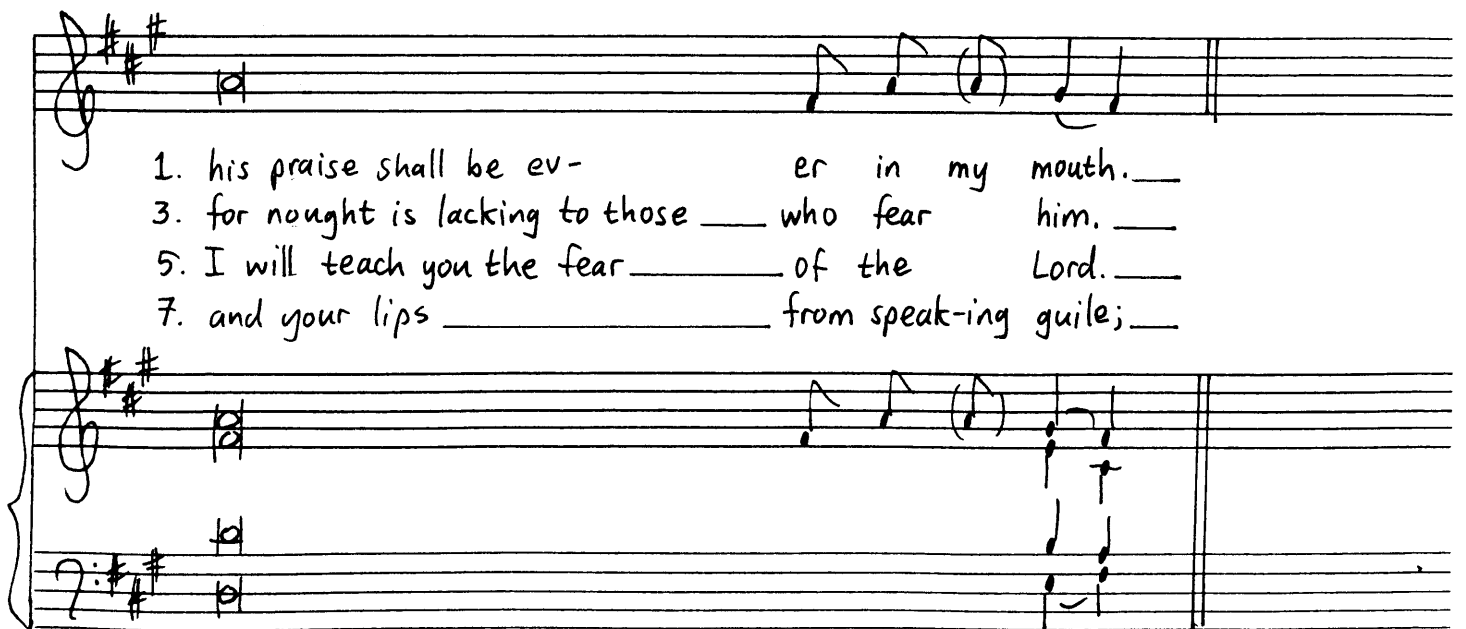 1. his praise shall be ev- er in my mouth.
3. for nought is lacking to those who fear him.
5. I will teach you the fear of the Lord.
7. and your lips from speak-ing guile;